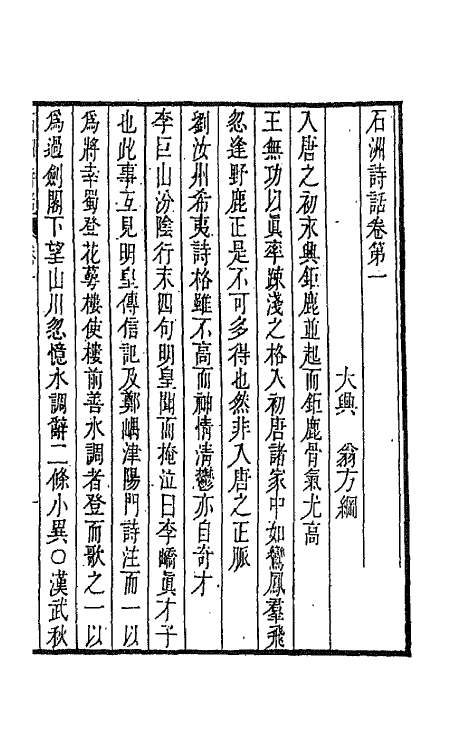 石洲詩話卷第一
大興　翁方綱
入唐之初永興鉅鹿並起而鉅鹿骨氣尤高
王無功以眞率踈淺之格入初唐諸家中如鸞鳳羣飛
忽逢野鹿正是不可多得也然非入唐之正脈
劉汝州希夷詩格雖不高而神情淸鬱亦自奇才
李巨山汾陰行末四句明皇聞而掩泣曰李嶠眞才子
也此事互見明皇傳信記及鄭嵎津陽門詩注而一以
爲將幸蜀登花萼樓使樓前善水調者登而歌之一以
爲過劍閣下望山川忽憶水調辭二條小異○漢武秋